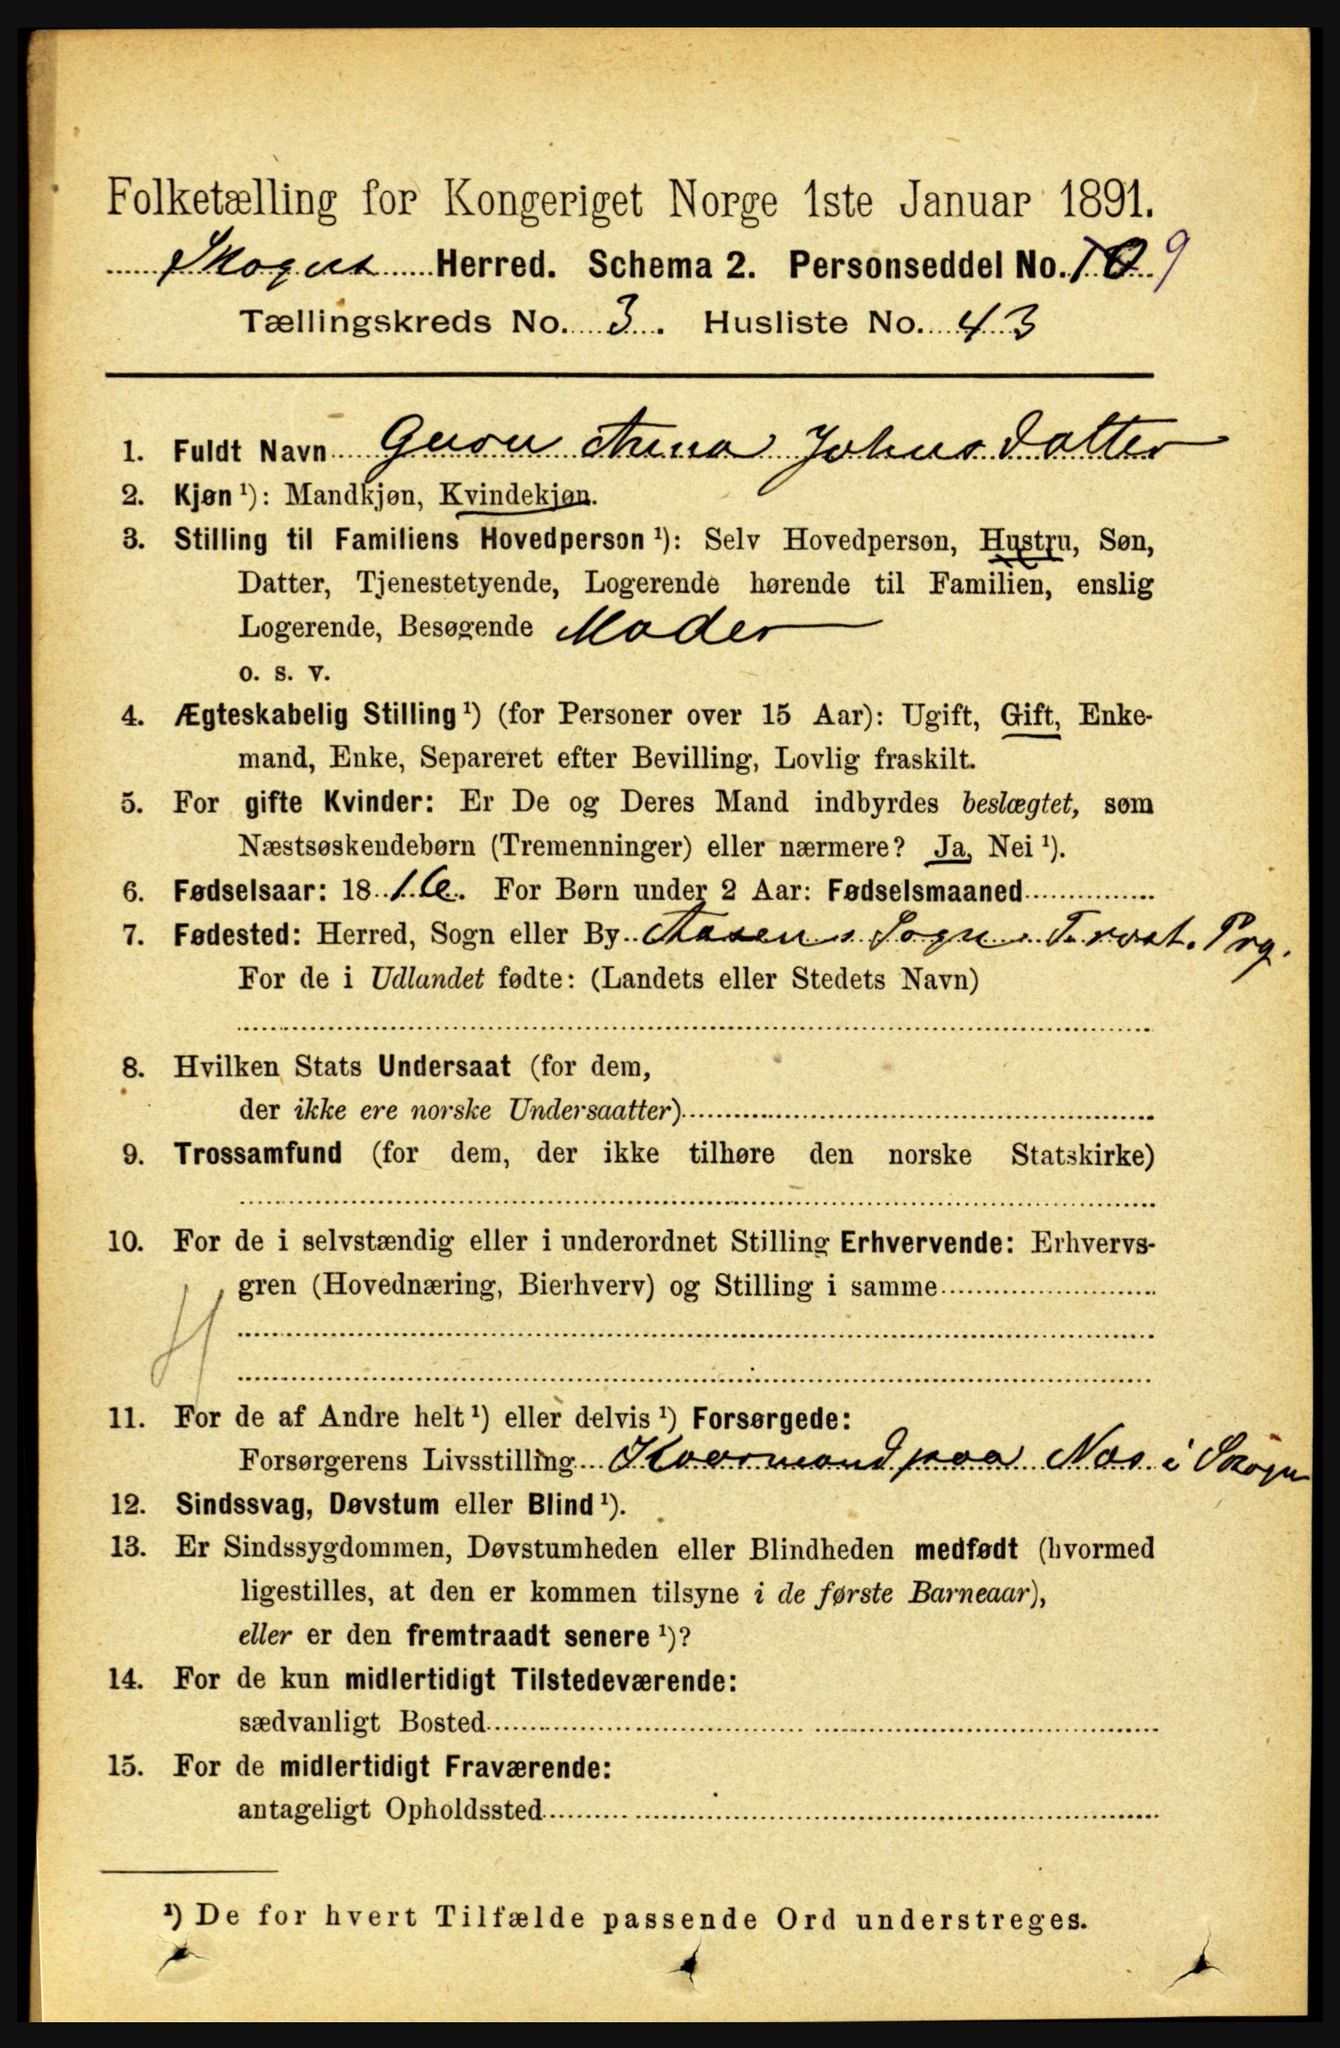 Folketælling for Kongeriget Norge 1ste Januar 1891.
Skogn Herred. Schema 2. Personseddel No. 10 9
Tællingskreds No. 3. Husliste No. 43
1. Fuldt Navn Guru Anna Johnsdatter
2. Kjøn ¹): Mandkjøn, Kvindekjøn.
3. Stilling til Familiens Hovedperson ¹): Selv Hovedperson, Hustru, Søn,
Datter, Tjenestetyende, Logerende hørende til Familien, enslig
Logerende, Besøgende Moder
o. s. v.
4. Ægteskabelig Stilling ¹) (for Personer over 15 Aar): Ugift, Gift, Enke-
mand, Enke, Separeret efter Bevilling, Lovlig fraskilt.
5. For gifte Kvinder: Er De og Deres Mand indbyrdes beslægtet, som
Næstsøskendebørn (Tremenninger) eller nærmere? Ja, Nei ¹).
6. Fødselsaar: 1816. For Børn under 2 Aar: Fødselsmaaned
7. Fødested: Herred, Sogn eller By Aasen Sogn Frost. Prg.
For de i Udlandet fødte: (Landets eller Stedets Navn)
8. Hvilken Stats Undersaat (for dem,
der ikke ere norske Undersaatter)
9. Trossamfund (for dem, der ikke tilhøre den norske Statskirke)
10. For de i selvstændig eller i underordnet Stilling Erhvervende: Erhvervs-
gren (Hovednæring, Bierhverv) og Stilling i samme
11. For de af Andre helt ¹) eller delvis ¹) Forsørgede:
Forsørgerens Livsstilling Kaarmand paa Nos i Skogn
12. Sindssvag, Døvstum eller Blind ¹).
13. Er Sindssygdommen, Døvstumheden eller Blindheden medfødt (hvormed
ligestilles, at den er kommen tilsyne i de første Barneaar),
eller er den fremtraadt senere ¹)?
14. For de kun midlertidigt Tilstedeværende:
sædvanligt Bosted
15. For de midlertidigt Fraværende:
antageligt Opholdssted
¹) De for hvert Tilfælde passende Ord understreges.